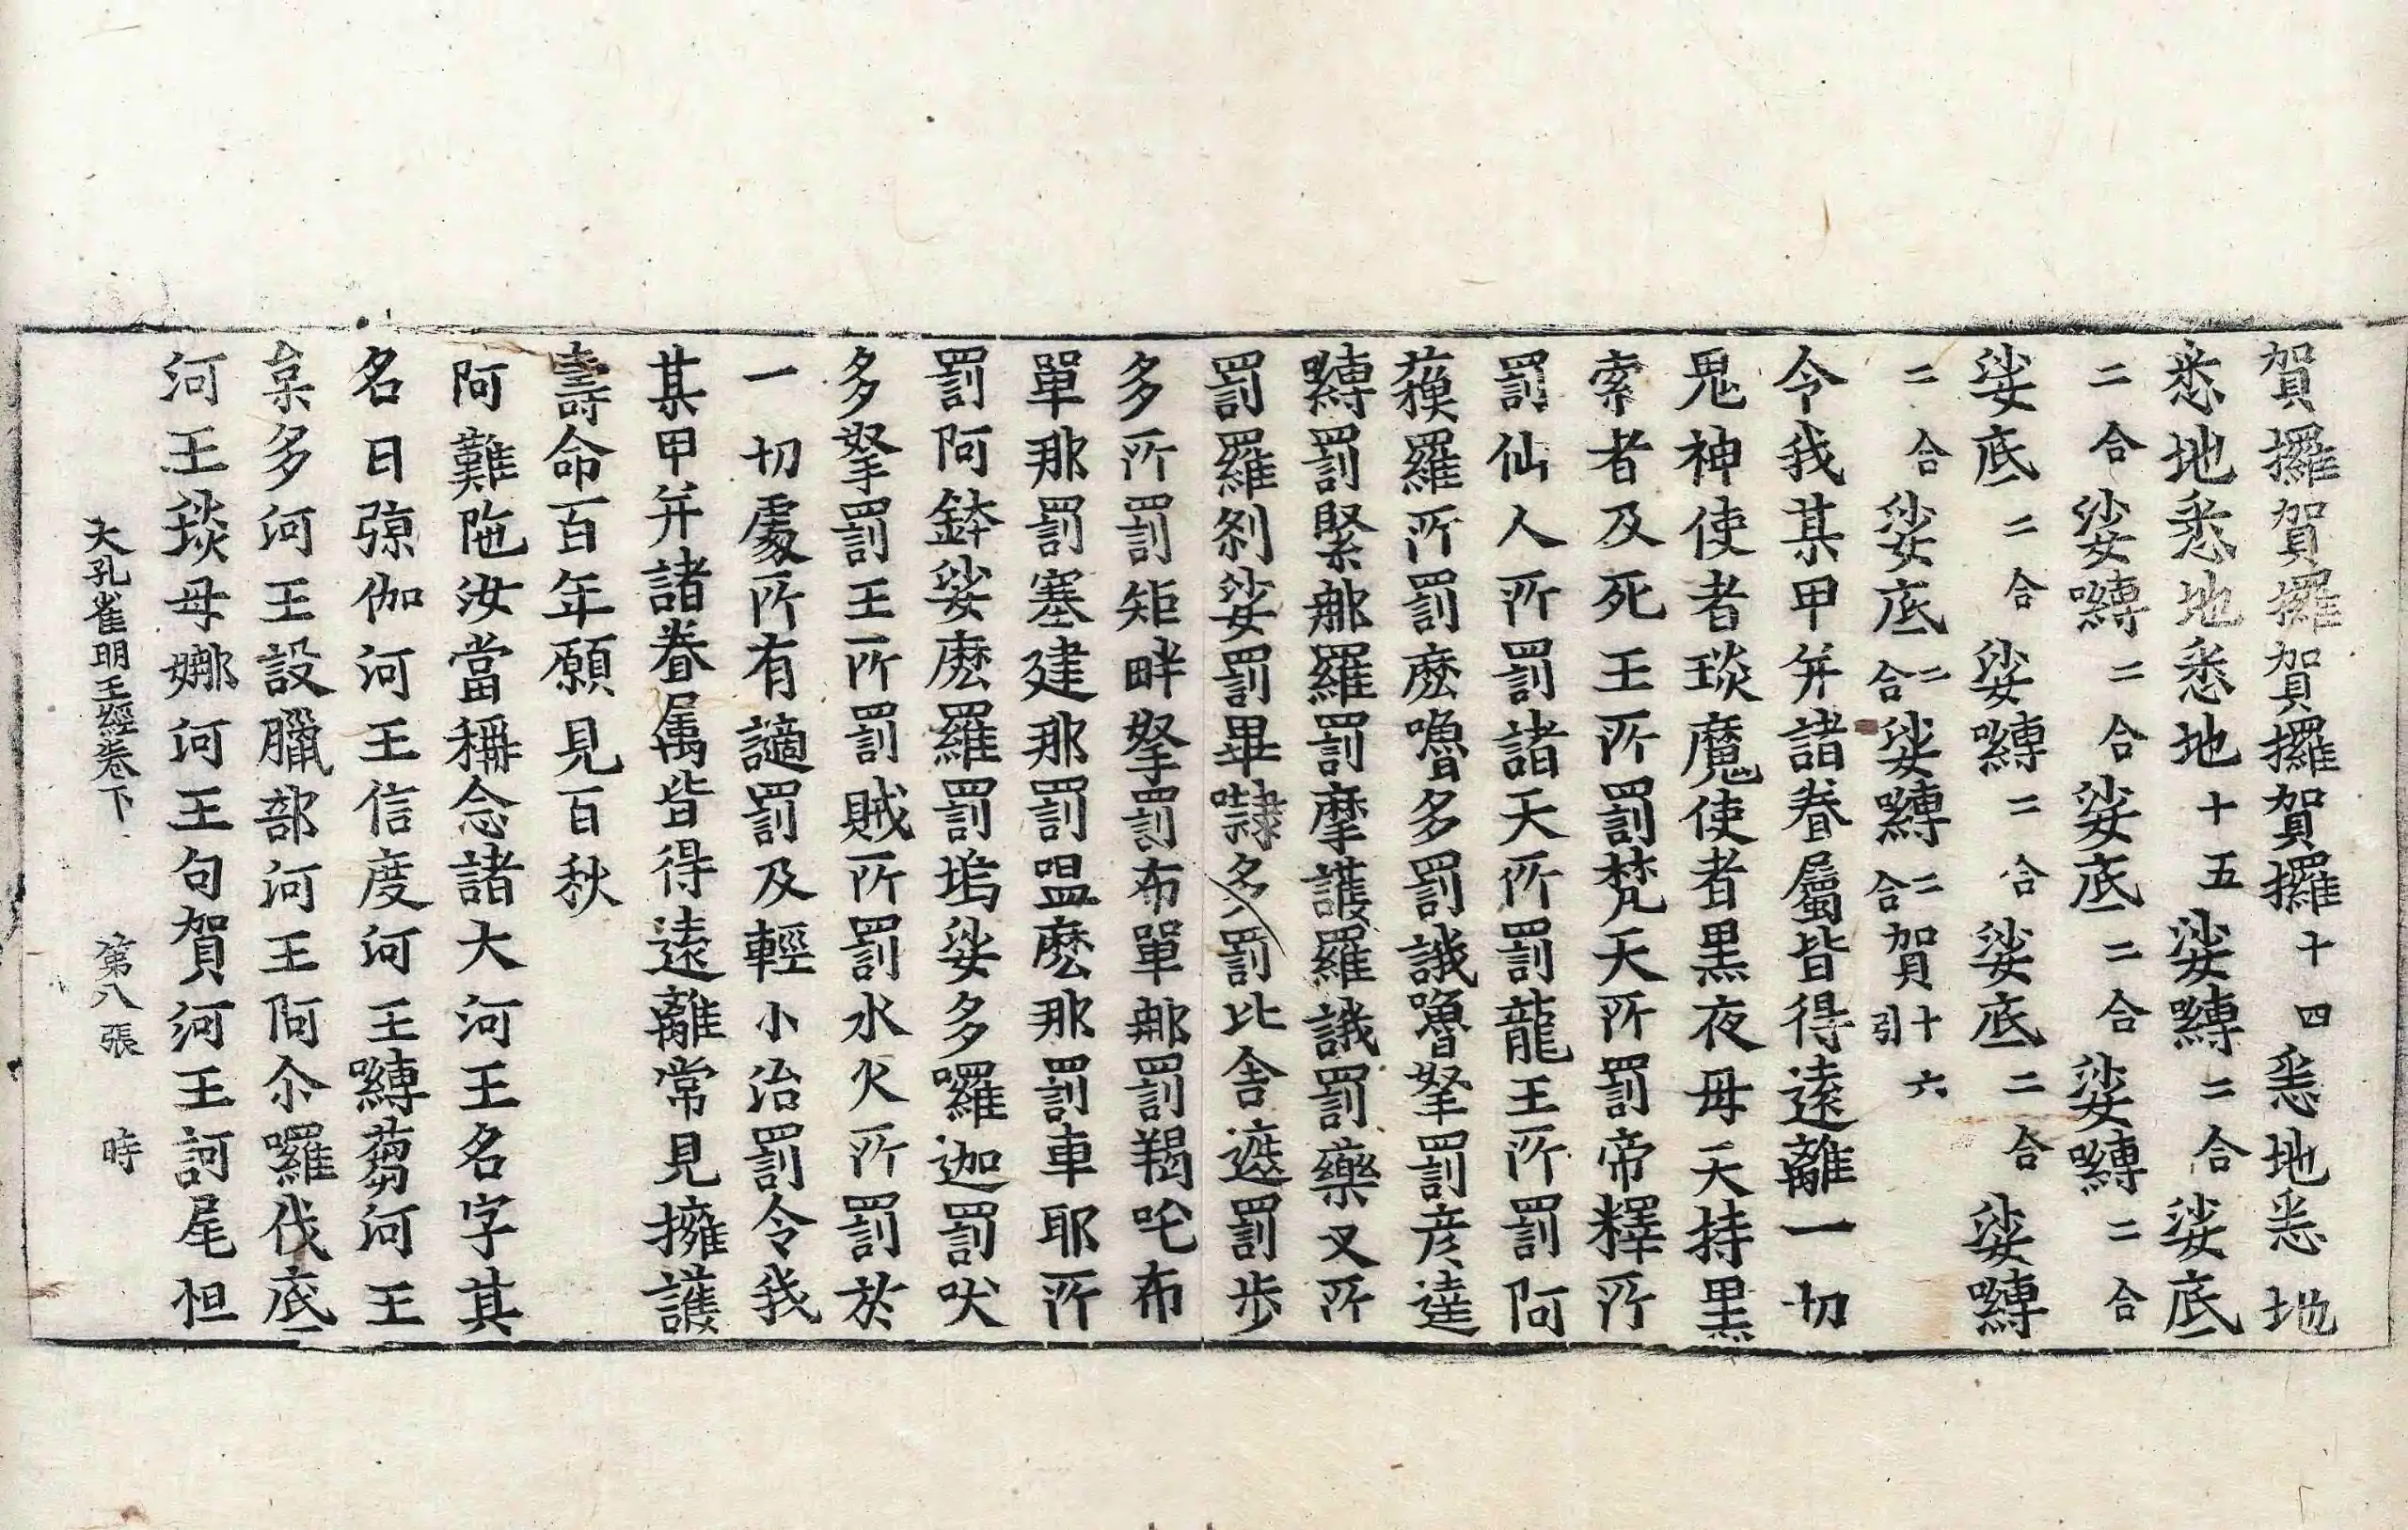 賀攞賀攞賀攞賀攞十四悉地悉地
悉地悉地悉地十五娑嚩二合娑底
二合娑嚩二合娑底二合娑嚩二合
娑底二合娑嚩二合娑底二合娑嚩
二合娑底二合娑嚩二合賀引十六
令我某甲并諸眷屬皆得遠離一切
鬼神使者琰魔使者黑夜母天持黑
索者及死王所罰梵天所罰帝釋所
罰仙人所罰諸天所罰龍王所罰阿
蘇羅所罰麽嚕多罰誐嚕拏罰彦達
嚩罰緊那羅罰摩護羅誐罰藥叉所
罰羅刹娑罰畢隸多罰比舍遮罰步
多所罰矩畔拏罰布單那罰羯吒布
單那罰塞建那罰嗢麽那罰車耶所
罰阿鉢娑麽羅罰塢娑多囉迦罰吠
多拏罰王所罰賊所罰水火所罰於
一切處所有讁罰及輕小治罰令我
某甲并諸眷属皆得遠離常見擁護
壽命百年願見百秋
阿難陁汝當稱念諸大河王名字其
名曰殑伽河王信度河王嚩蒭河王
枲多河王設臘部河王阿尒囉伐底
河王琰母娜河王句賀河王訶尾怛
大孔雀明王經卷下 第八張 時